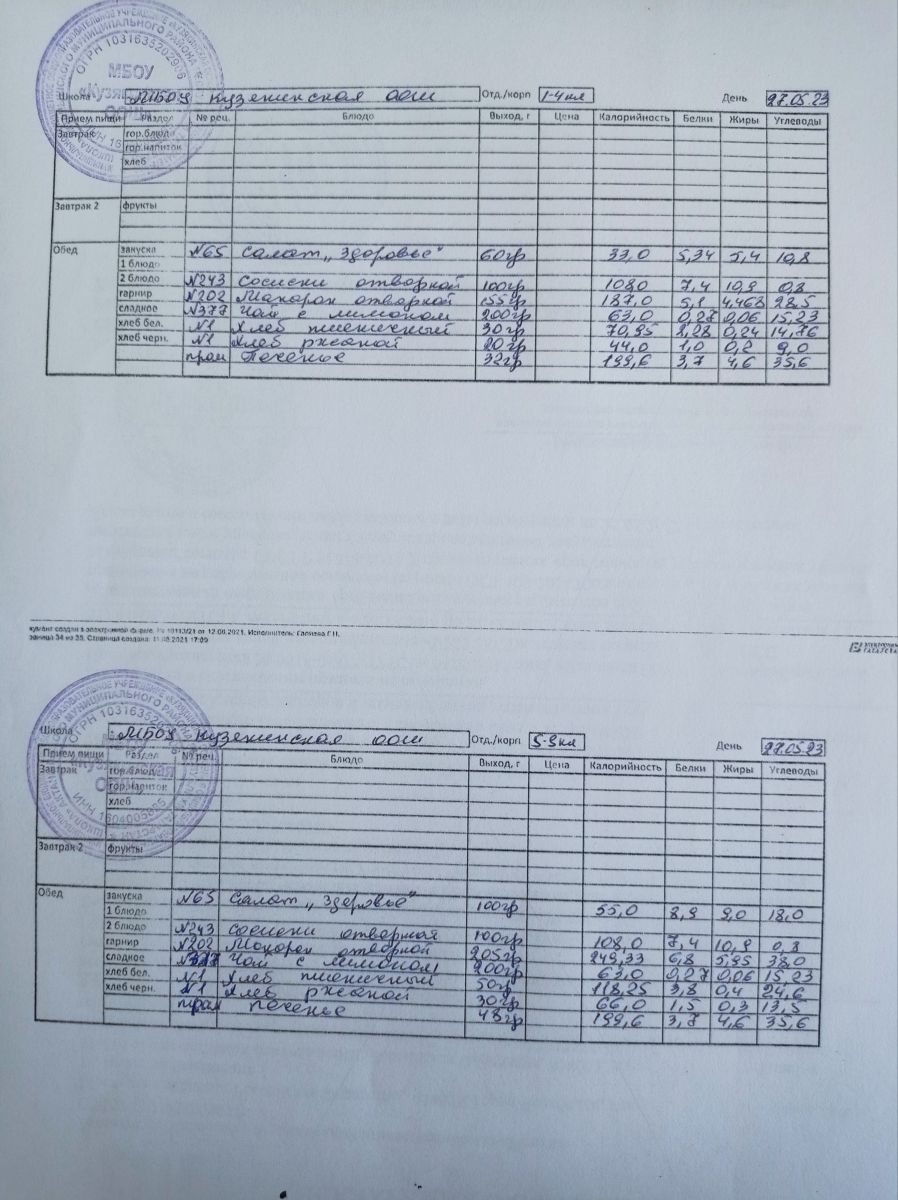 МБОУ
Школа МБОУ Кузякинская ООШ Отд./корп 1-4 кл День 27.05.23
Прием пищи Раздел № рец. Блюдо Выход, г Цена Калорийность Белки Жиры Углеводы
Завтрак гор.блюдо
гор.напиток
хлеб
Завтрак 2 фрукты
Обед закуска №65 Салат „Здоровье" 60гр 33,0 5,34 5,4 10,8
1 блюдо
2 блюдо №243 Сосиски отварной 100гр 108,0 7,4 10,9 0,8
гарнир №202 Макарон отварной 155гр 187,0 5,1 4,468 28,5
сладкое №377 Чай с лимоном 200гр 63,0 0,27 0,06 15,23
хлеб бел. №1 Хлеб пшеничный 30гр 70,95 2,28 0,24 14,76
хлеб черн. №1 Хлеб ржаной 20гр 44,0 1,0 0,2 9,0
пром Печенье 32гр 199,6 3,7 4,6 35,6
12.08.2021. Исполнитель:
Страница создана: 17:09
Школа МБОУ Кузякинская ООШ Отд./корп 5-9 кл День 27.05.23
Прием пищи Раздел № рец. Блюдо Выход, г Цена Калорийность Белки Жиры Углеводы
Завтрак гор.блюдо
гор.напиток
хлеб
Завтрак 2 фрукты
Обед закуска №65 Салат „Здоровье" 100гр 55,0 8,9 9,0 18,0
1 блюдо
2 блюдо №243 Сосиски отварная 100гр 108,0 7,4 10,9 0,8
гарнир №202 Макарон отварной 205гр 249,33 6,8 5,95 38,0
сладкое №377 Чай с лимоном 200гр 63,0 0,27 0,06 15,23
хлеб бел. №1 Хлеб пшеничный 50гр 118,25 3,8 0,4 24,6
хлеб черн. №1 Хлеб ржаной 30гр 66,0 1,5 0,3 13,5
пром Печенье 48гр 199,6 3,7 4,6 35,6